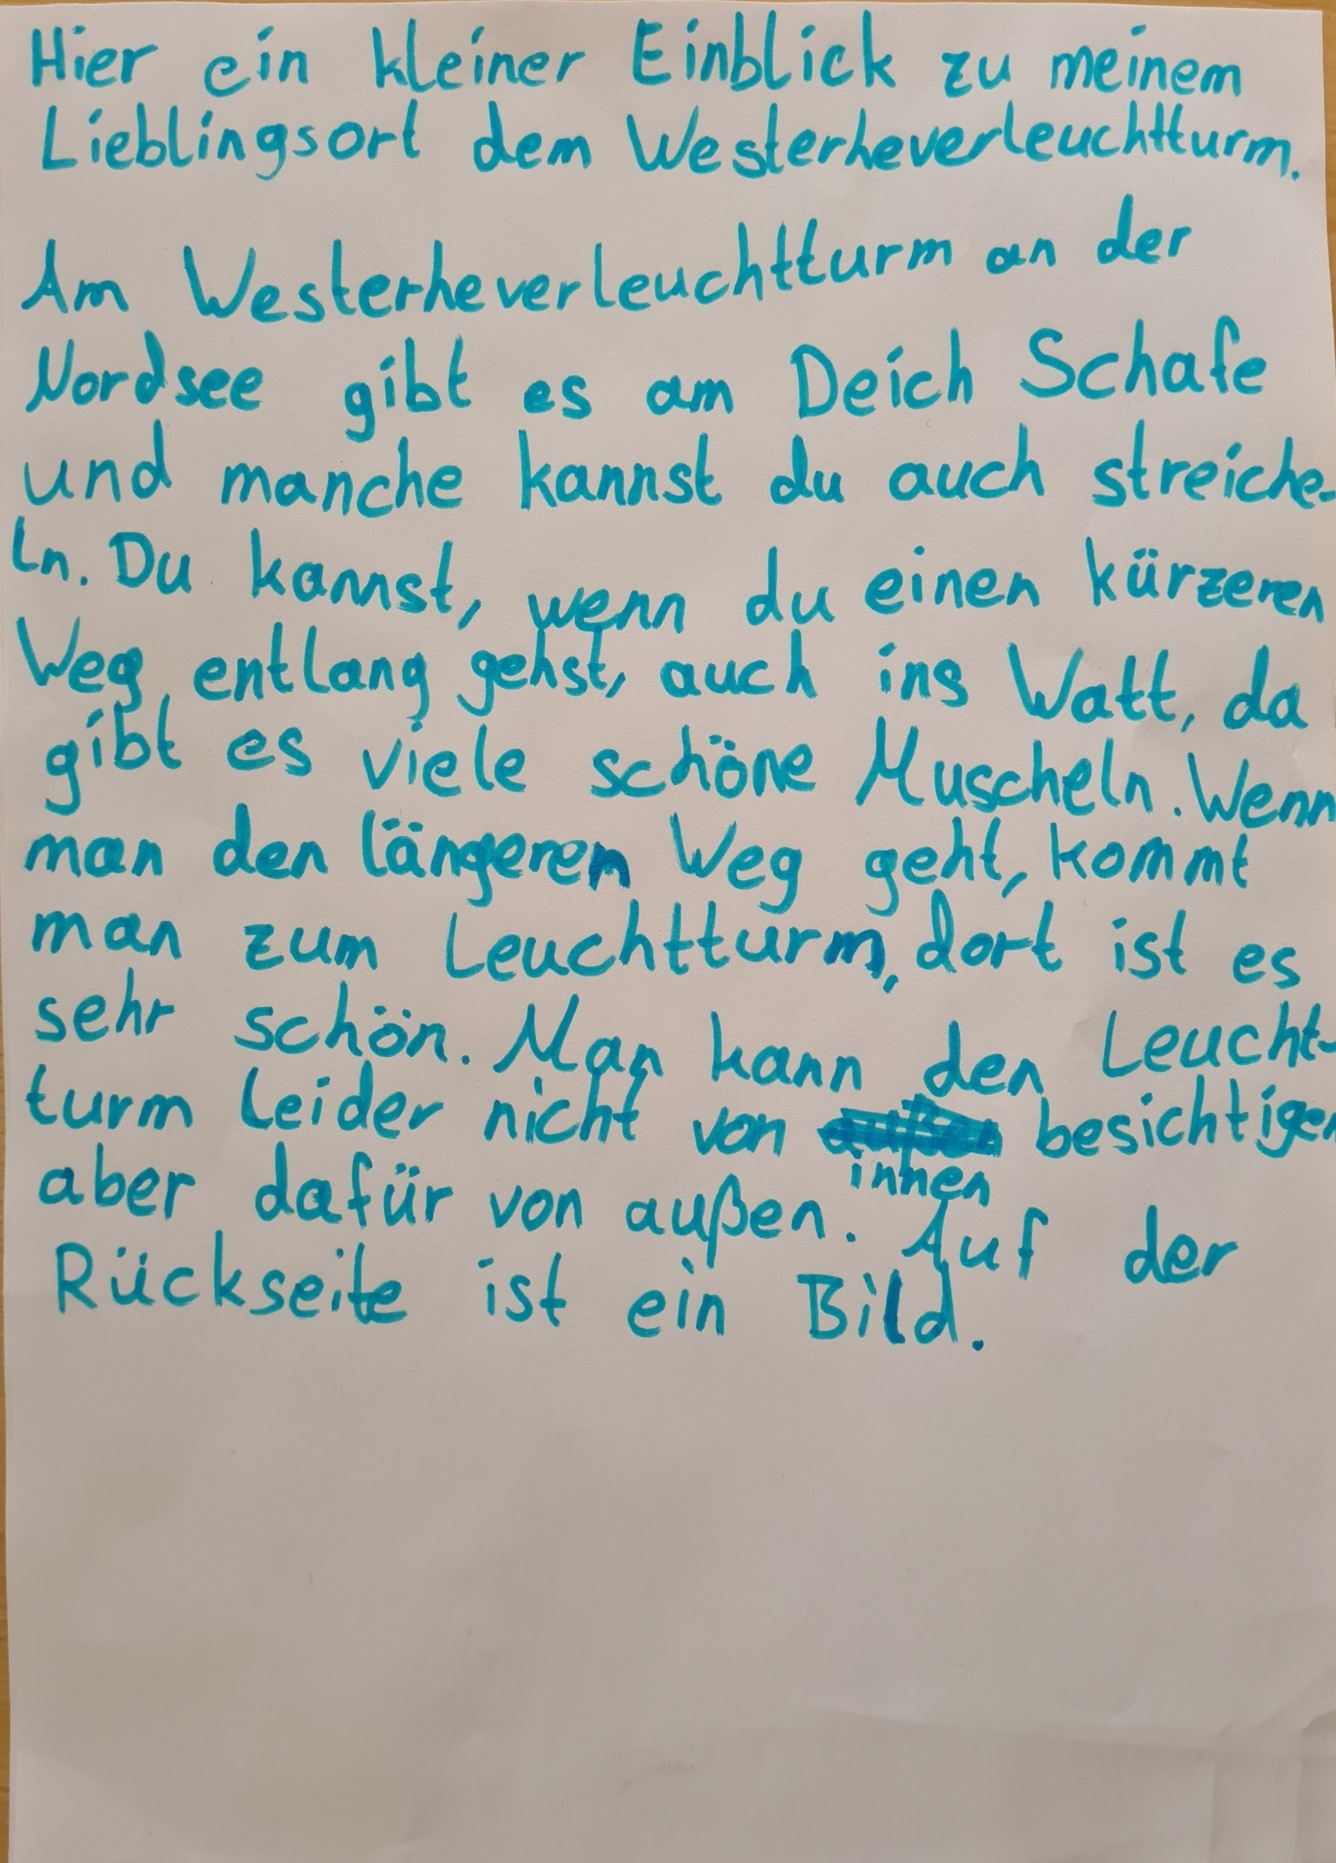 Hier ein kleiner Einblick zu meinem
Lieblingsort dem Westerheverleuchtturm.
Am Westerheverleuchtturm an der
Nordsee gibt es am Deich Schafe
und manche kannst du auch streiche-
ln. Du kannst, wenn du einen kürzeren
Weg entlang gehst, auch ins Watt, da
gibt es viele schöne Muscheln. Wenn
man den längeren Weg geht, kommt
man zum Leuchtturm, dort ist es
sehr schön. Man kann den Leucht-
turm leider nicht von außen besichtigen
innen
aber dafür von außen. Auf der
Rückseite ist ein Bild.